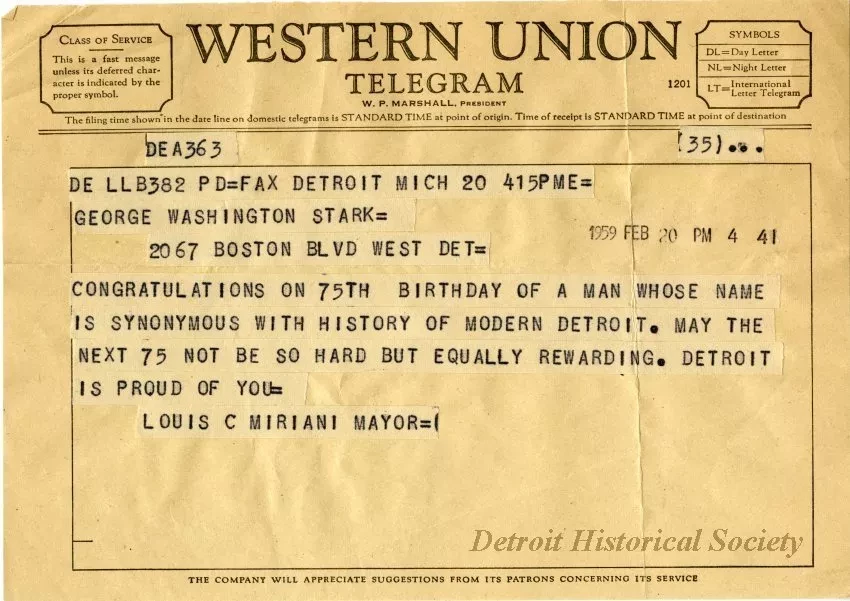 CLASS OF SERVICE
This is a fast message
unless its deferred char-
acter is indicated by the
proper symbol.
WESTERN UNION
TELEGRAM
W. P. MARSHALL, PRESIDENT
1201
SYMBOLS
DL=Day Letter
NL=Night Letter
LT=International Letter Telegram
The filing time shown in the date line on domestic telegrams is STANDARD TIME at point of origin. Time of receipt is STANDARD TIME at point of destination
DEA363 (35)...
DE LLB382 PD=FAX DETROIT MICH 20 415PME=
GEORGE WASHINGTON STARK=
1959 FEB 20 PM 4 41
2067 BOSTON BLVD WEST DET=
CONGRATULATIONS ON 75TH BIRTHDAY OF A MAN WHOSE NAME
IS SYNONYMOUS WITH HISTORY OF MODERN DETROIT. MAY THE
NEXT 75 NOT BE SO HARD BUT EQUALLY REWARDING. DETROIT
IS PROUD OF YOU=
LOUIS C MIRIANI MAYOR=(
Detroit Historical Society
THE COMPANY WILL APPRECIATE SUGGESTIONS FROM ITS PATRONS CONCERNING ITS SERVICE